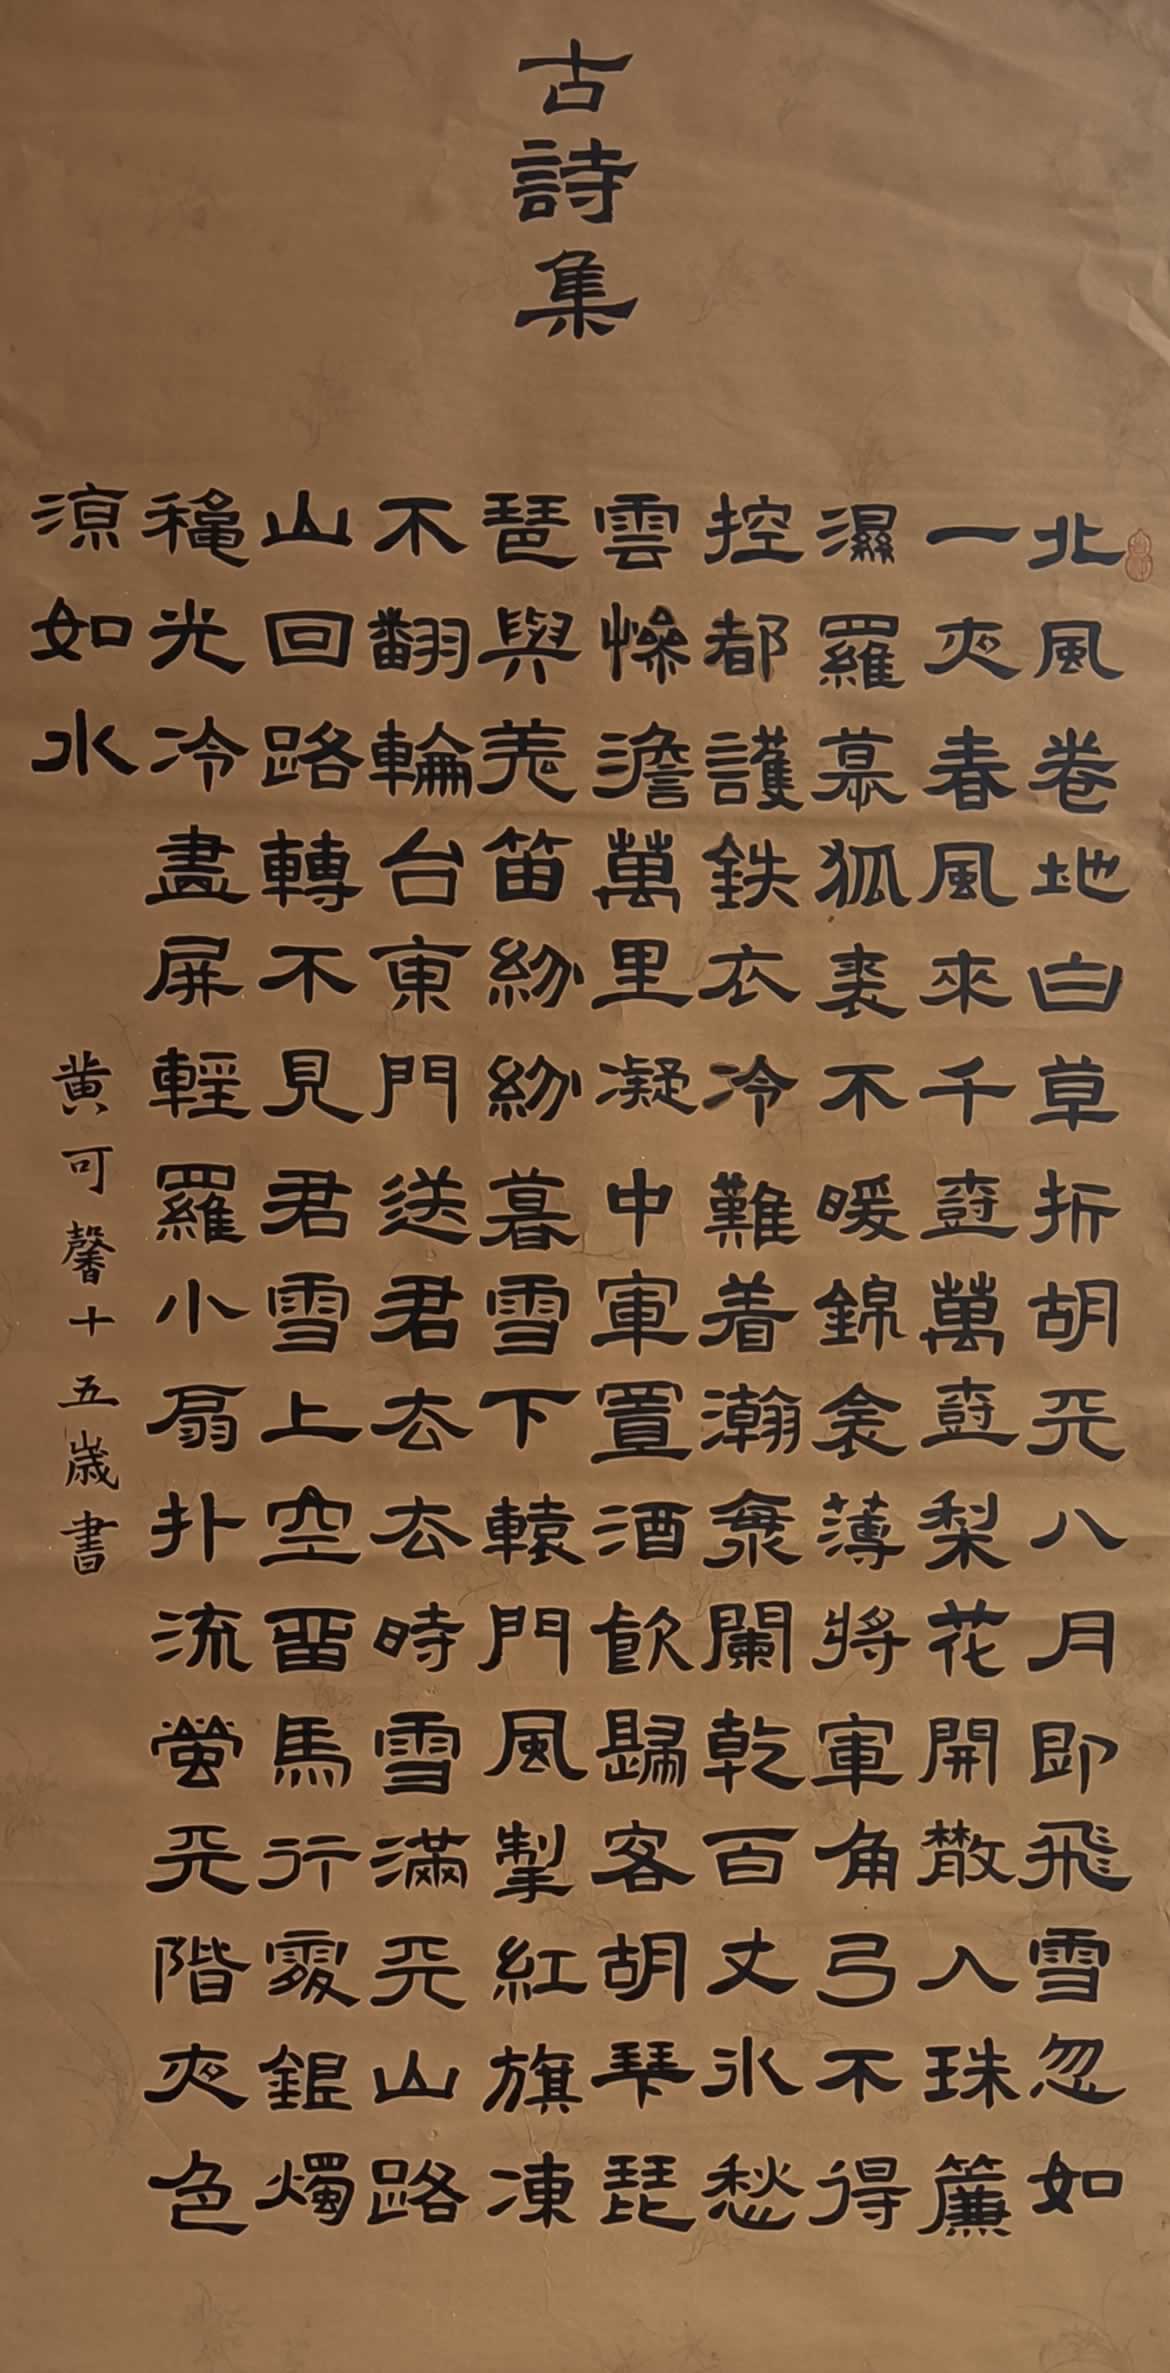 古詩集
北風卷地白草折胡天八月即飛雪忽如
一夜春風來千樹萬樹梨花開散入珠簾
濕羅幕狐裘不暖錦衾薄將軍角弓不得
控都護鉄衣冷難着瀚海闌乾百丈冰愁
雲慘澹萬里凝中軍置酒飲歸客胡琴琵
琶與羌笛紛紛暮雪下轅門風掣紅旗凍
不翻輪台東門送君去去時雪滿天山路
山回路轉不見君雪上空留馬行處銀燭
穐光冷畫屏輕羅小扇扑流螢天階夜色
涼如水
黄可馨十五歲書